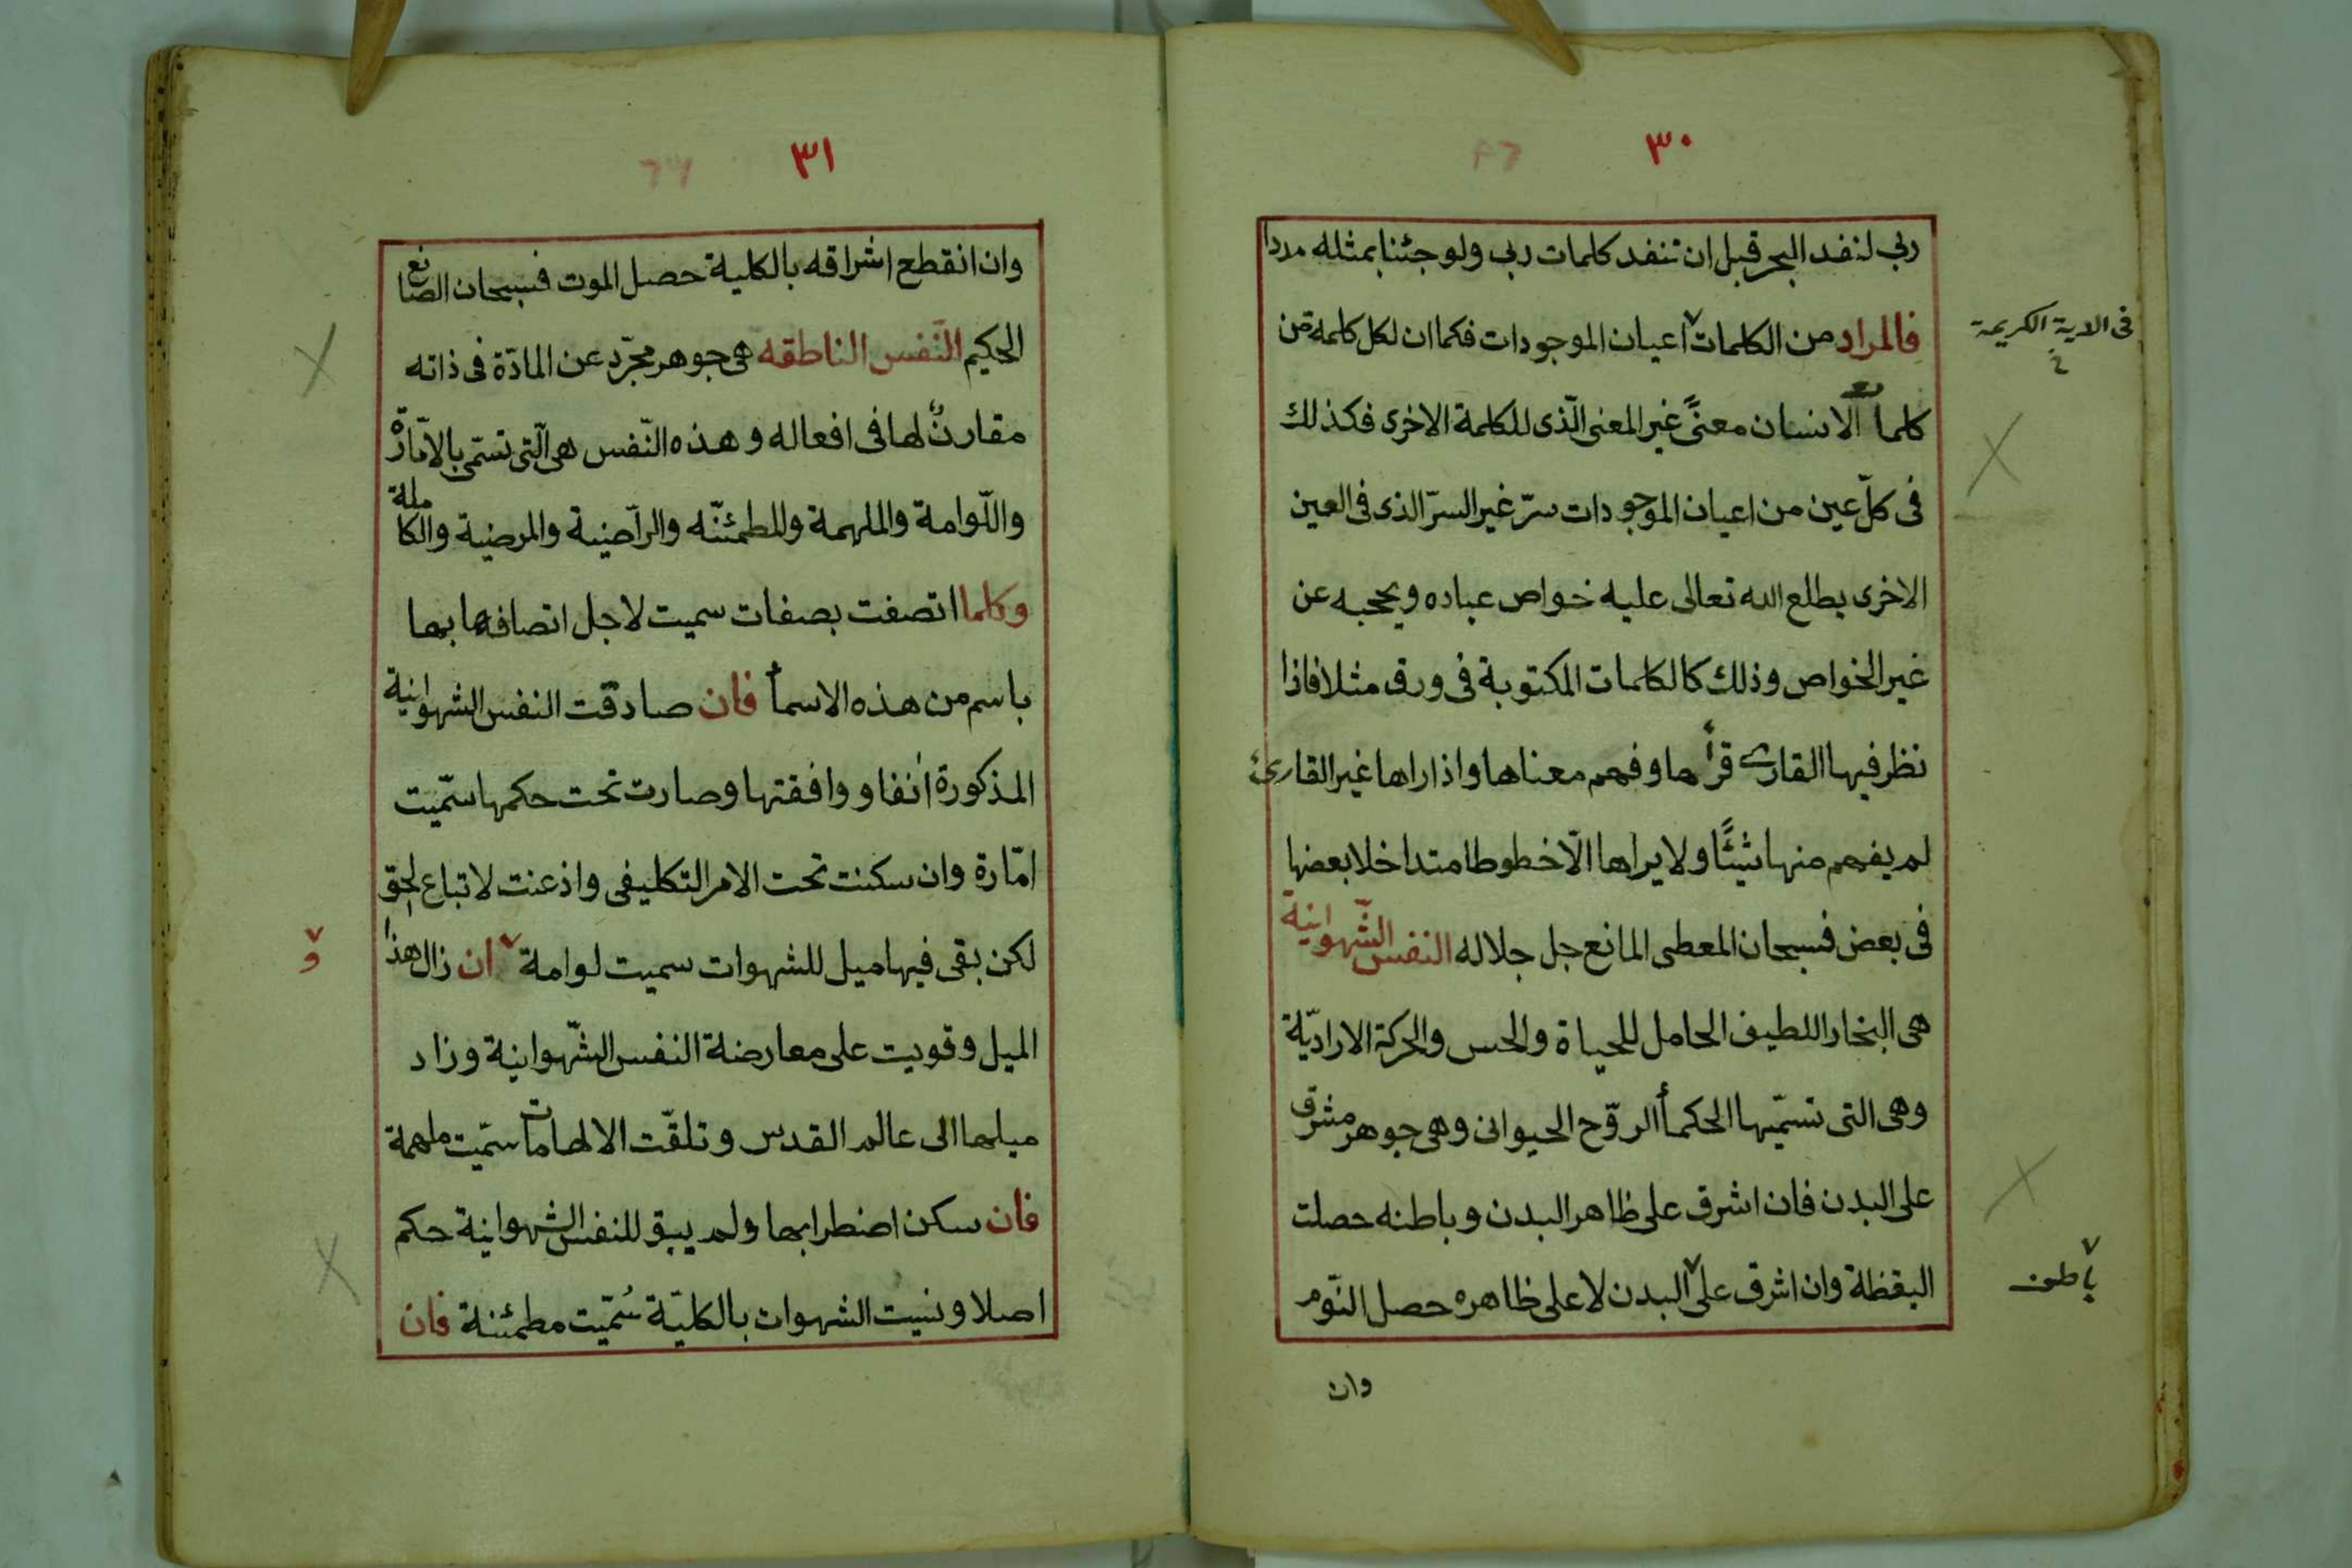 ٣٠
ربي لنفد البحر قبل ان تنفد كلمات ربي ولو جئنا بمثله مددا
فالمراد من الكلمات اعيان الموجودات فكما ان لكل كلمة من
في الاية الكريمة
كلمات الانسان معنًى غير المعنى الّذى للكلمة الاخرى فكذلك
فى كلّ عين من اعيان الموجودات سرّ غير السرّ الذى فى العين
الاخرى يطلع الله تعالى عليه خواص عباده ويحجبه عن
غير الخواص وذلك كالكلمات المكتوبة فى ورق مثلا فاذا
نظر فيها القارئ قرأها وفهم معناها واذا راها غير القارئ
لم يفهم منها شيئًا ولا يراها الّا خطوطا متداخلا بعضها
فى بعض فسبحان المعطى المانع جل جلاله النفس الشّهوانية
هى البخار اللطيف الحامل للحياة والحس والحركة الاراديّة
وهى التى تسمّيها الحكمأ الروّح الحيوانى وهى جوهر مشرق
على البدن فان اشرق على ظاهر البدن وباطنه حصلت
اليقظة وان اشرق على البدن لا على ظاهره حصل النّوم
باطن
وان
٣١
وان انقطع اشراقه بالكلية حصل الموت فسبحان الصانع
الحكيم النّفس الناطقه هى جوهر مجرّد عن المادّة فى ذاته
مقارنٌ لها فى افعاله وهذه النّفس هى الّتى تسمّى بالامّارة
واللّوامة والملهمة والمطمئنّه والراضية والمرضية والكاملة
وكلما اتصفت بصفات سميت لاجل اتصافها بها
باسم من هذه الاسمأ فان صادقت النفس الشهوانية
المذكورة انفا ووافقتها وصارت تحت حكمها سمّيت
امّارة وان سكنت تحت الامر التكليفى واذعنت لاتباع الحق
لكن بقى فيها ميل للشهوات سميت لوامة ان زال هذا
و
الميل وقويت على معارضة النفس الشّهوانية وزاد
ميلها الى عالم القدس وتلقّت الالهامات سمّيت ملهمة
فان سكن اضطرابها ولم يبق للنفس الشهوانية حكم
اصلا ونسيت الشهوات بالكليّة سُمّيت مطمئنة فان